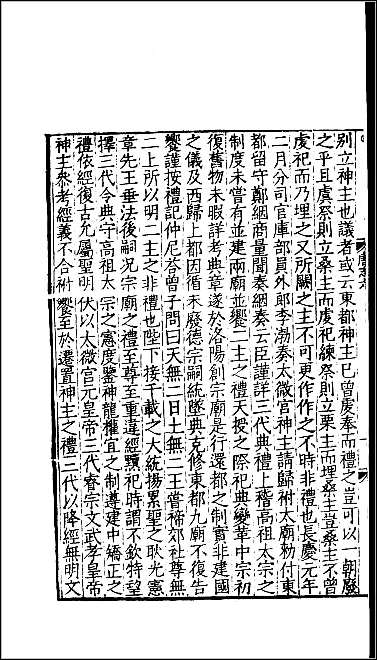 別立神主也議者或云東都神主已曾虔奉而禮之豈可以一朝廢
之乎且虞祭則立桑主而虞祀練祭則立栗主而埋桑主豈桑主不曾
虔祀而乃埋之又所闕之主不可更作作之不時非禮也長慶元年
二月分司官庫部員外郎李渤奏太微宮神主請歸祔太廟勑付東
都留守鄭絪商量聞奏絪奏云臣謹詳三代典禮上稽高祖太宗之
制度未嘗有並建兩廟並饗二主之禮天授之際祀典變革中宗初
復舊物未暇詳考典章遂於洛陽創宗廟是行遷都之制實非建國
之儀及西歸上都因循未廢德宗嗣統墜典克修東都九廟不復告
饗謹按禮記仲尼荅曾子問曰天無二日土無二王嘗禘郊社尊無
二上所以明二主之非禮也陛下接千載之大統揚累聖之耿光憲
章先王垂法後嗣况宗廟之禮至尊至重違經瀆祀時謂不欽特望
擇三代令典守高祖太宗之憲度鑒神龍權宜之制遵建中矯正之
禮依經復古允屬聖明伏以太微宮元皇帝三代睿宗文武孝皇帝
神主叅考經義不合祔饗至於遷置神主之禮三代以降經無明文